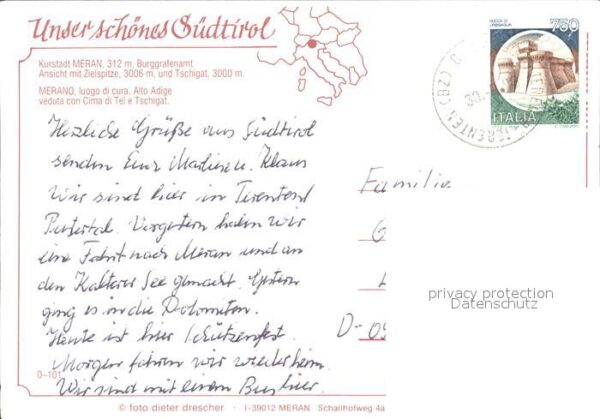 Unser schönes Südtirol
Kurstadt MERAN, 312 m, Burggrafenamt
Ansicht mit Zielspitze, 3006 m, und Tschigat, 3000 m.
MERANO, luogo di cura. Alto Adige
veduta con Cima di Tel e Tschigat.
ROCCA DI
URBISAGLIA
750
ITALIA
TERENTEN (BZ)
30.
Herzliche Grüße aus Südtirol
senden Eure Marlies u. Klaus
Wir sind hier in Terenten/
Pustertal. Vorgestern haben wir
eine Fahrt nach Meran und an
den Kalterer See gemacht. Gestern
ging es in die Dolomiten.
Heute ist hier Schützenfest.
Morgen fahren wir wieder heim.
Wir sind mit einem Bus hier.
Familie
G
D-09
privacy protection
Datenschutz
0-101
© foto dieter drescher · I-39012 MERAN Schallhofweg 4a